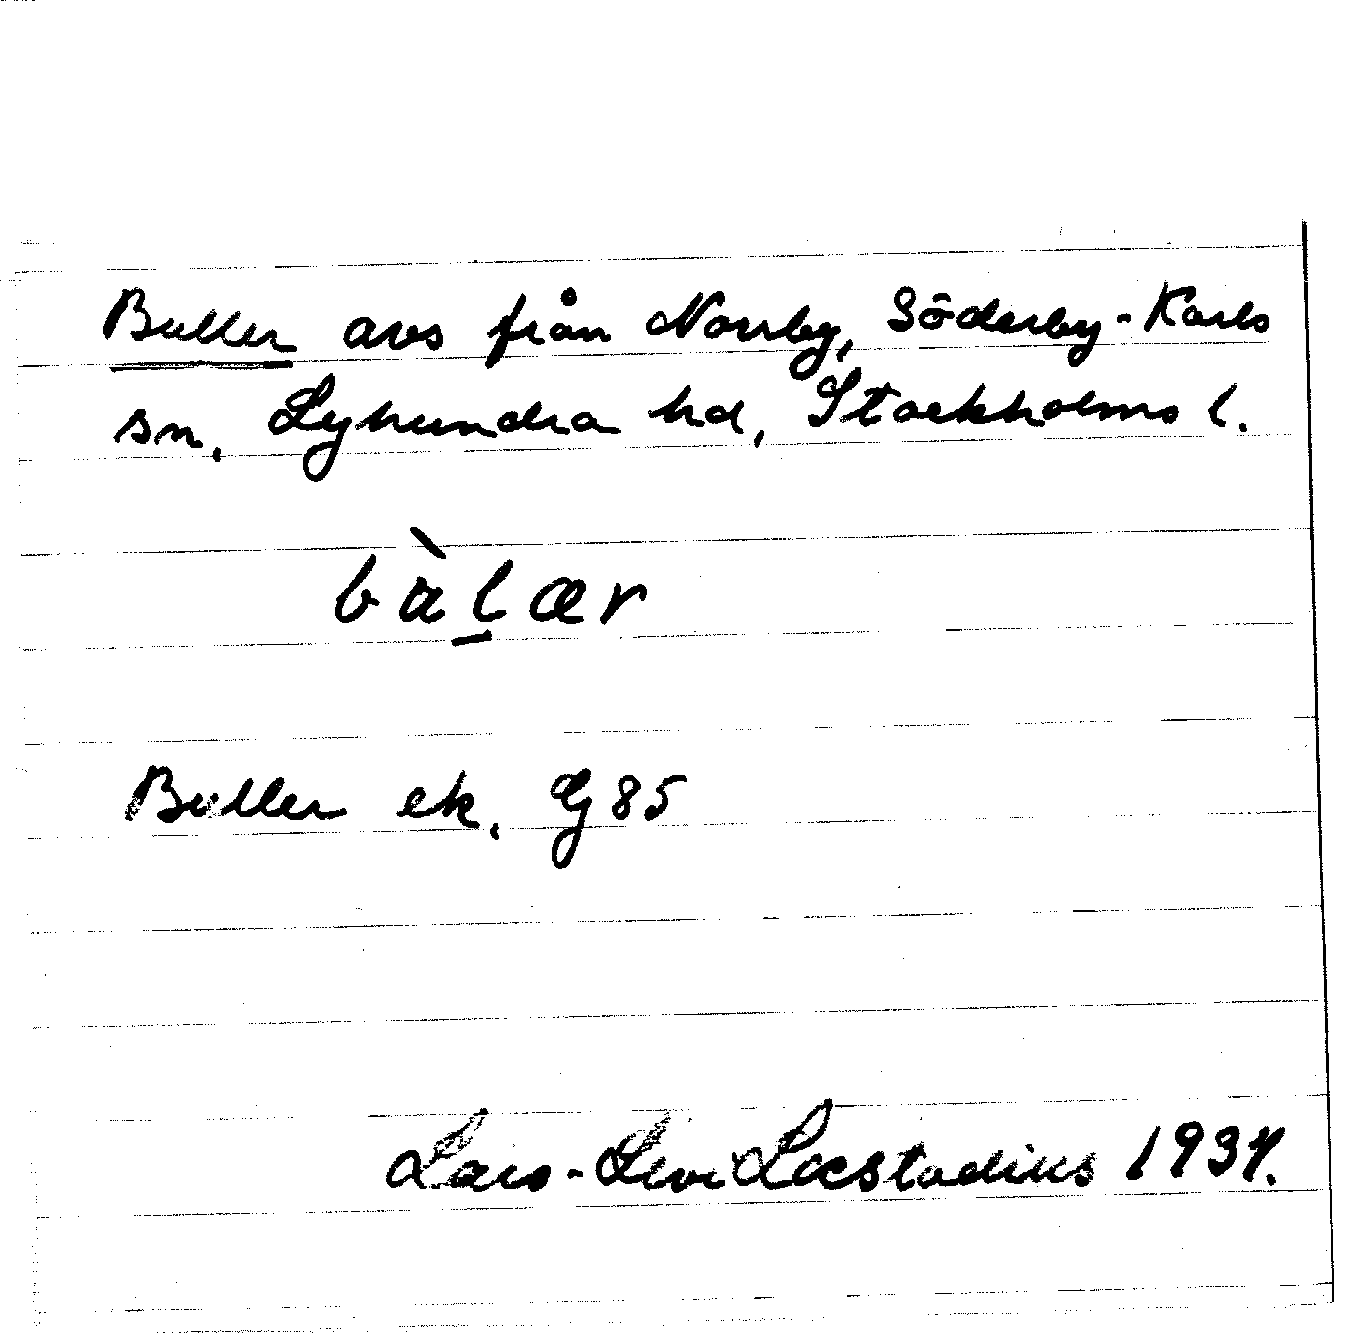 Buller avs från Norrby, Söderby-Karls
sn, Lyhundra hd, Stockholms l.
bàl̲ær
Buller ek. G 85
Lars-Levi Læstadius 1937.